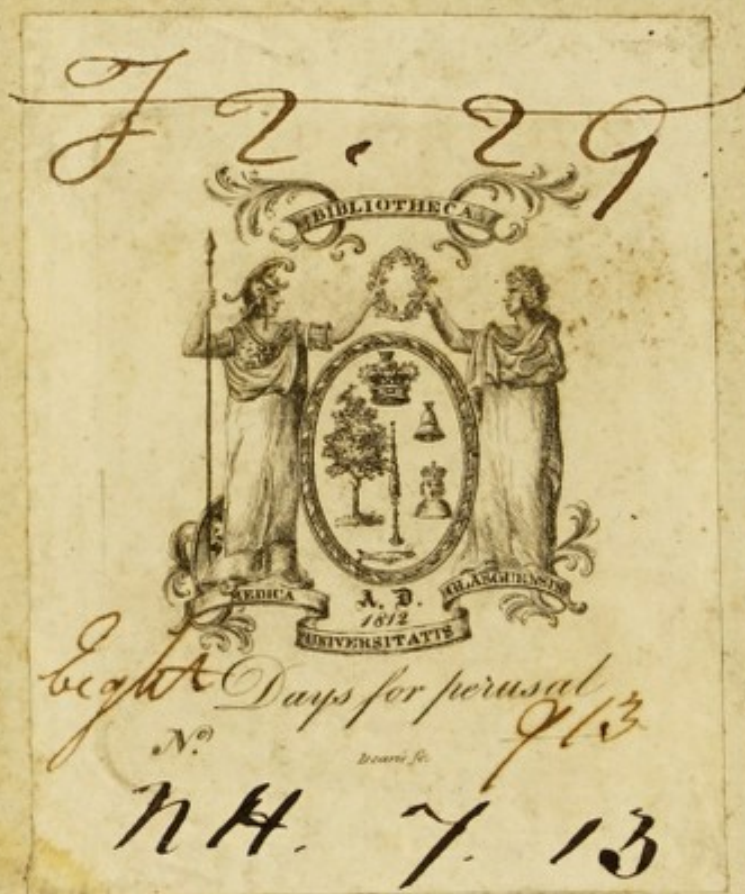 F 2. 29
BIBLIOTHECA
MEDICA
GLASGUENSIS
A. D.
1812
UNIVERSITATIS
Eight Days for perusal
No. 913
NH. 7. 13